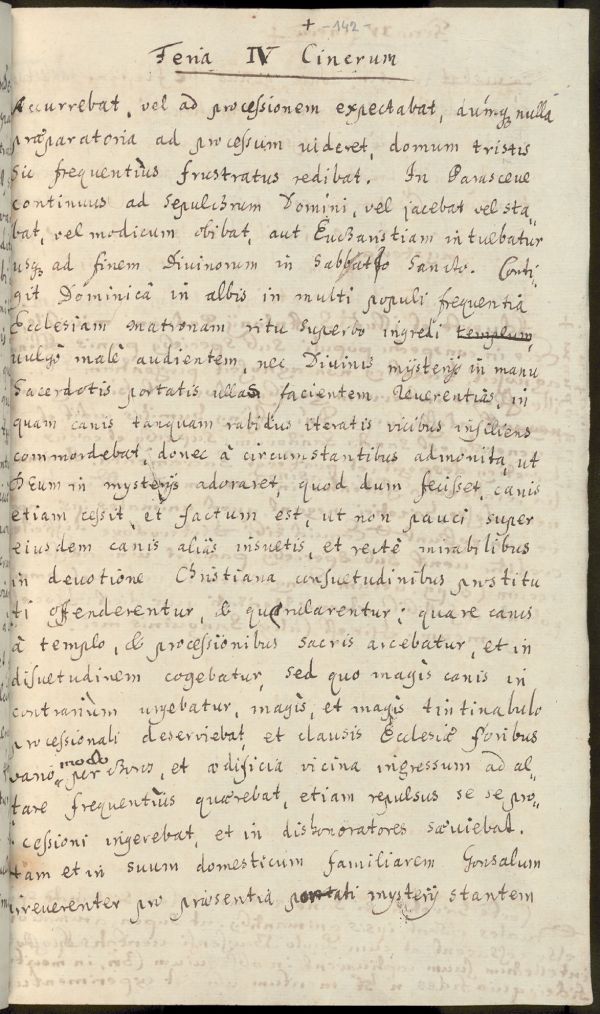 + -142-
Feria IV Cinerum
Accurrebat, vel ad processionem expectabat, dumq nulla
præparatoria ad processum uideret, domum tristis
sic frequentiùs frustratus redibat. In Parasceue
continuus ad sepulchrum Domini, vel jacebat vel sta„
bat, vel modicum obibat, aut Eucharistiam intuebatur
usq ad finem Divinorum in Sabbatho Sancto. Conti„
git Dominicâ in albis in multi populi frequentiâ
Ecclesiam matronam ritu superbo ingredi templum,
uulgò malè audientem, nec Divinis mysterijs in manu
Sacerdotis portatis ullas facientem Reuerentias, in
quam canis tanquam rabidus iteratis vicibus insiliens
commordebat, donec â circumstantibus admonita, ut
DEum in mysterijs adoraret, quod dum fecisset, canis
etiam cessit, et factum est, ut non pauci super
eiusdem canis aliàs insuetis, et rectè mirabilibus
in deuotione Christiana consuetudinibus prostitu
ti offenderentur, & quærularentur; quare canis
â templo, & processionibus sacris arcebatur, et in
disuetudinem cogebatur, sed quo magis canis in
contrarium urgebatur, magis, et magis tintinabulo
processionali deseruiebat, et clausis Ecclesiæ foribus
vario modo per Boros, et ædificia vicina ingressum ad al„
tare frequentiùs quærebat, etiam repulsus se se pro„
cessioni ingerebat, et in dishonoratores sæuiebat.
tam et in suum domesticum familiarem Gonsalum
irreuerenter pro præsentiâ portati mysterij stantem